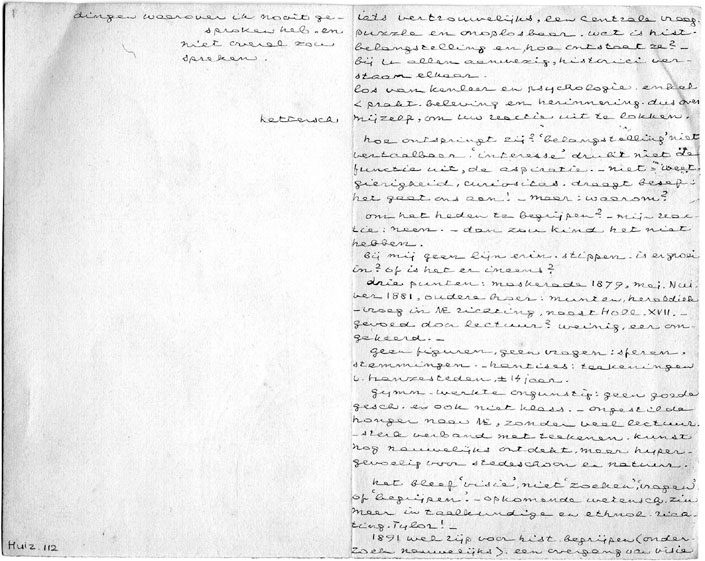 dingen waarover ik nooit ge-
sproken heb en
niet overal zou
spreken.
kettersch
iets vertrouwelijks, een centrale vraag.
puzzle en onoplosbaar. wat is hist.
belangstelling en hoe ontstaat ze? –
bij u allen aanwezig, historici ver-
staan elkaar.
los van kenleer en psychologie. enkel
< prakt. beleving en herinnering. dus over
mijzelf, om uw reactie uit te lokken.
hoe ontspringt zij? 'belangstelling' niet
vertaalbaar. 'interesse' drukt niet de
functie uit, de aspiratie. – niet 'weet-
gierigheid, curiositas. draagt besef:
het gaat ons aan! – maar: waarom?
om het heden te begrijpen? – mijn reac
tie: neen. – dan zou kind het niet
hebben.
bij mij geen lijn erin. stippen. is er groei
in? of is het er ineens?
drie punten: maskerade 1879, maj. Nui
ver 1881, oudere broer: munten, heraldiek
– vroeg in ME richting, naast Holl. XVII. –
gevoed door lectuur? weinig, eer om-
gekeerd. –
geen figuren, geen vragen: sferen.
stemmingen. – hantises: teekeningen
v. hanzesteden, ± 14 jaar.
gymn. werkte ongunstig: geen goede
gesch. en ook niet klass. – ongestilde
honger naar ME, zonder veel lectuur.
– sterk verband met teekenen. kunst
nog nauwelijks ontdekt, maar hyper-
gevoelig voor stedeschoon en natuur.
het bleef 'visie', niet 'zoeken', 'vragen'
of 'begrijpen'. – opkomende wetensch. zin
meer in taalkundige en ethnol. rich-
ting. Tylor! –
1891 wel rijp voor hist. begrijpen (onder-
zoek nauwelijks). een overgang van visie
Huiz. 112